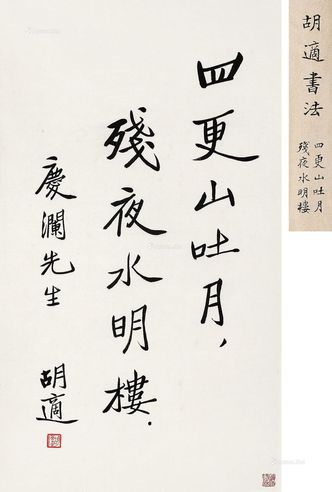 胡適書法
四更山吐月
殘夜水明樓
四更山吐月，
殘夜水明樓.
慶瀾先生
胡適